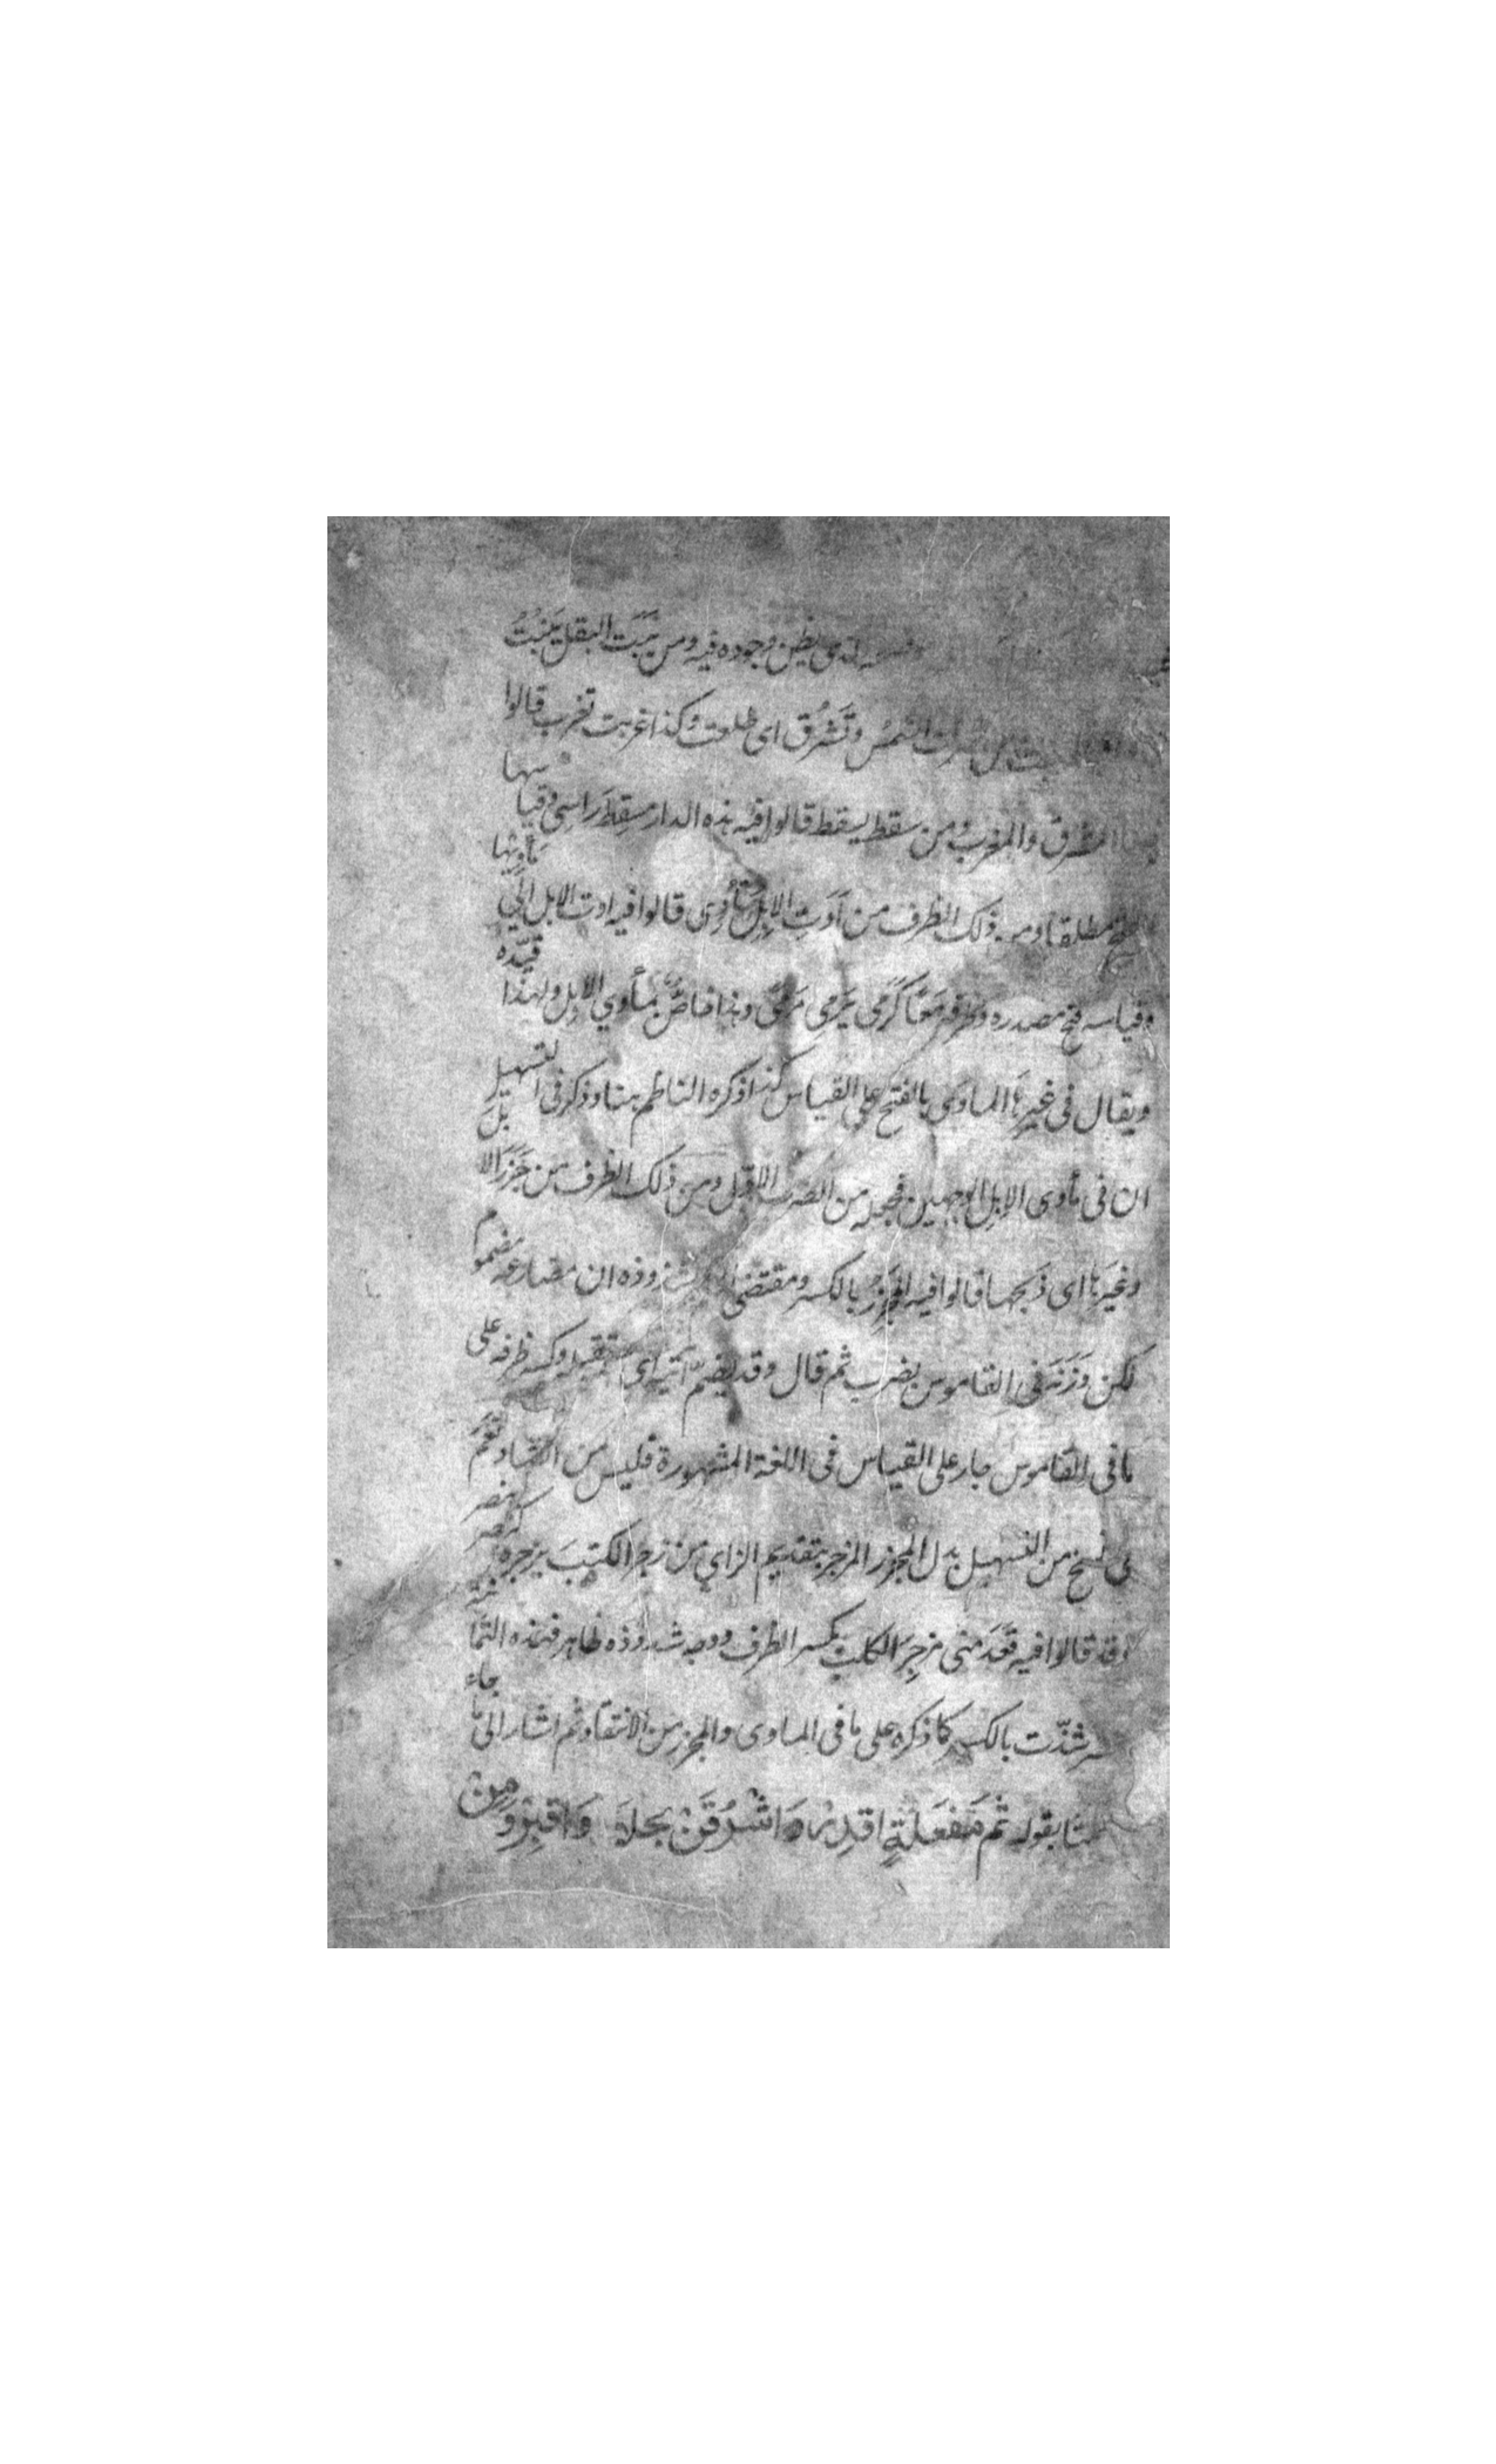 الذى يظن وجوده فيه ومن نَبَتَ البقل يَنبُتُ
الشمس وتَشرُق اى طلعت وكذا غربت تغرب قالوا
المشرق والمغرب ومن سقط يسقط قالوا فيه هذه الدار مسقِط رَاسى وقياسها
الفتح مطلقا ومن ذلك الظرف من أَوَتِ الإبِل تأوى قالوا فيه اوت الابل الى مَأوِيها
وقياسه فتح مصدره وظرفه مَعًا كرَمى يَرمِى مَرمًى وهذا خاصٌّ بمأوي الابل ولهذا قيّده
ويقال فى غيرها الماوَى بالفتح على القياس كذا ذكره الناظم هنا وذكر فى التسهيل
ان فى مأوى الإبِل الوجهين فجعله من الضرب الاوّل ومن ذلك الظرف من جَزَرَ الابلَ
وغيرَها اى ذَبحها قالوا فيه المجزِرُ بالكسر ومقتضى شذوذه ان مضارعه مضموم
لكن وَزَنَه فى القاموس بضرب ثم قال وقد يضمّ آتيه اى مستقبله وكسر ظرفه على
ما فى القاموس جار على القياس فى اللغة المشهورة فليس من الشاذ نَعَم
فى نسخ من التسهيل بدل المجزر المزجر بتقديم الزاي من زجر الكلبَ يزجره كنصر ينصر
وقد قالوا فيه قَعَدَ منى مزجِرَ الكلب بكسر الظرف ووجه شذوذه ظاهر فهذه الثمانية
شذّت بالكسر كما ذكره على ما فى الماوى والمجزر من الانتقاد ثم اشار الى ما جاء
بقوله ثم مَفعَلةٍ اقدِرْهَ وَاشْرُقَنْ بخِلاَ وَاقبِرْ وَمِن